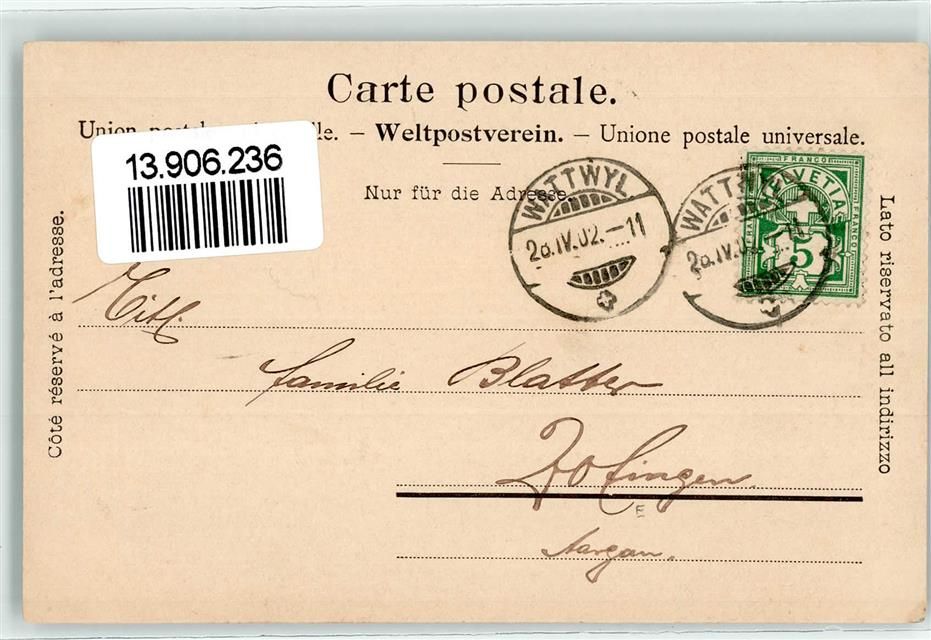 Carte postale.
Union postale universelle. – Weltpostverein. – Unione postale universale.
13.906.236
Nur für die Adresse.
WATTWYL
28.IV.02.–11
WATTWYL
28.IV.02.–11
FRANCO
HELVETIA
FRANCO
5
Côté réservé à l'adresse.
Lato riservato all indirizzo
Titl.
Familie Blatter
Zofingen
Aargau.